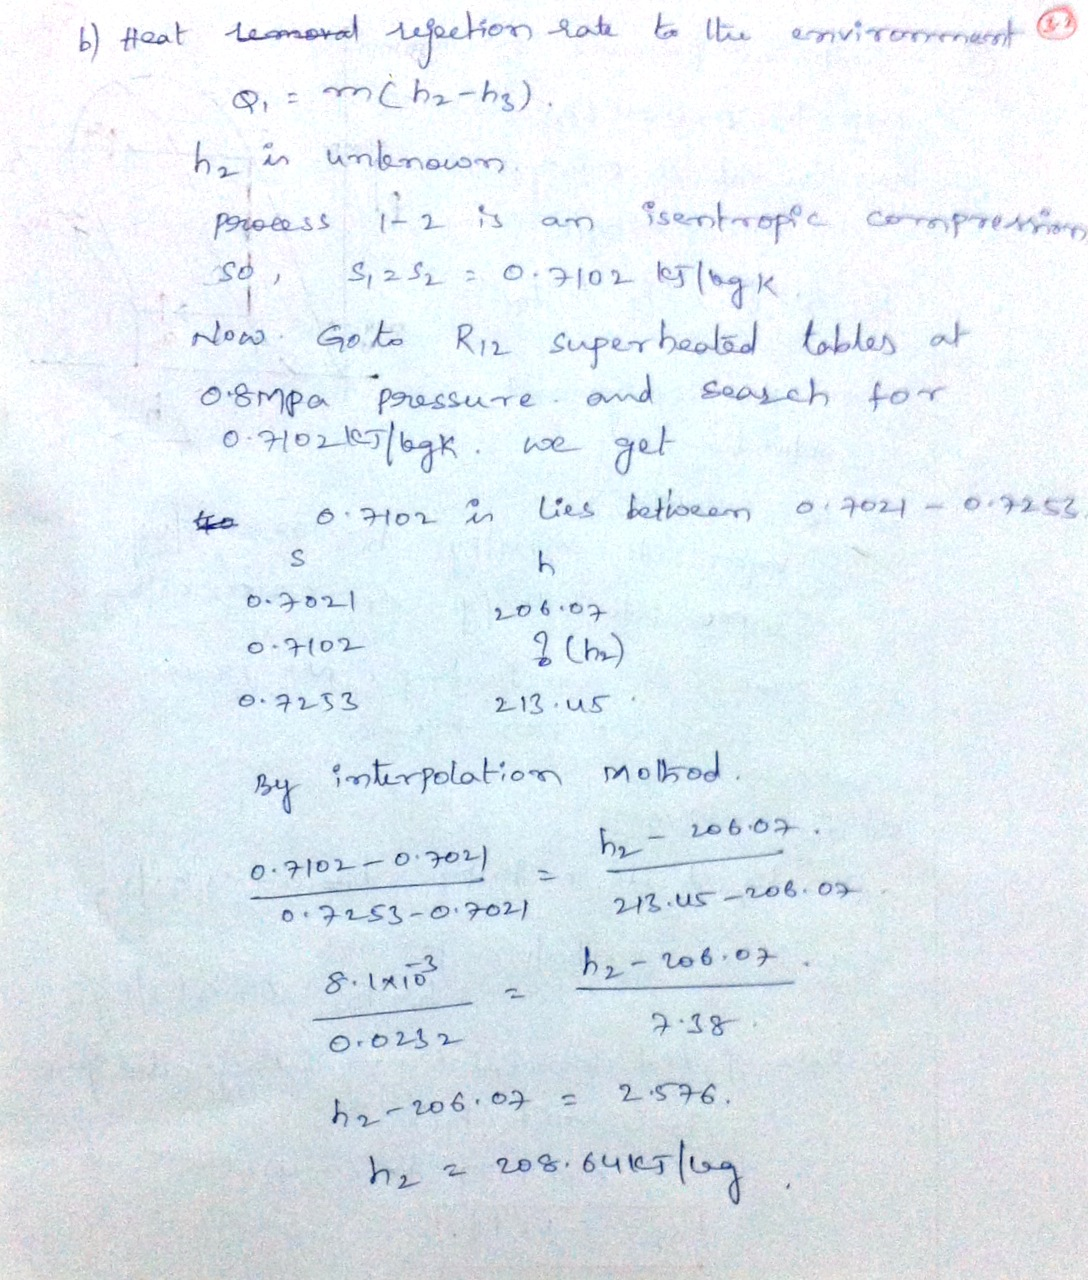 b) Heat removal rejection rate to the environment
Q₁ = m(h₂-h₃).
h₂ is unknown.
process 1-2 is an isentropic compression
so, S₁ = S₂ = 0.7102 kJ/kgK
Now. Goto R12 superheated tables at
0.8Mpa pressure. and search for
0.7102 kJ/kgK. we get
to 0.7102 is lies between 0.7021 - 0.7253.
S h
0.7021 206.07
0.7102 ? (h₂)
0.7253 213.45
By interpolation method.
0.7102-0.7021 / 0.7253-0.7021 = h₂ - 206.07 / 213.45-206.07
8.1x10⁻³ / 0.0232 = h₂-206.07 / 7.38
h₂-206.07 = 2.576.
h₂ = 208.64 kJ/kg.